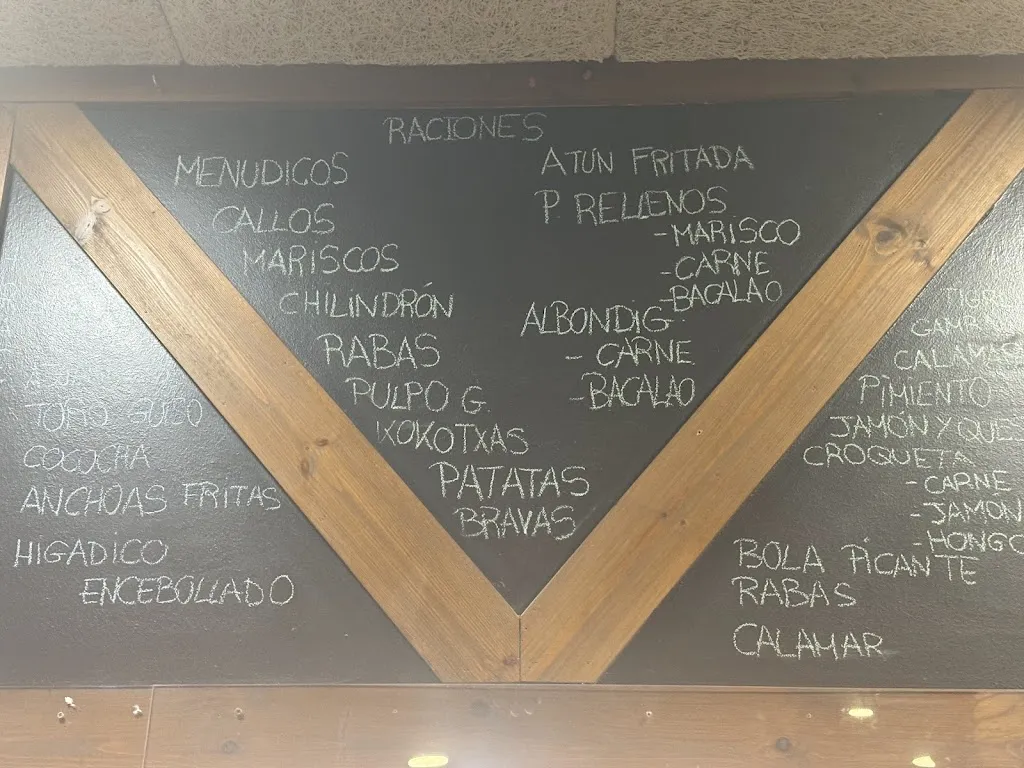 RACIONES
MENUDICOS
CALLOS
MARISCOS
CHILINDRÓN
RABAS
PULPO G.
KOKOTXAS
PATATAS
BRAVAS
ATÚN FRITADA
P. RELLENOS
-MARISCO
-CARNE
-BACALAO
ALBONDIG
- CARNE
-BACALAO
COCOCHA
ANCHOAS FRITAS
HIGADICO
ENCEBOLLADO
TIGR
GAMB
CALAMAR
PIMIENTO
JAMÓN Y QUES
CROQUETA
-CARNE
-JAMON
-HONGO
BOLA PICANTE
RABAS
CALAMAR